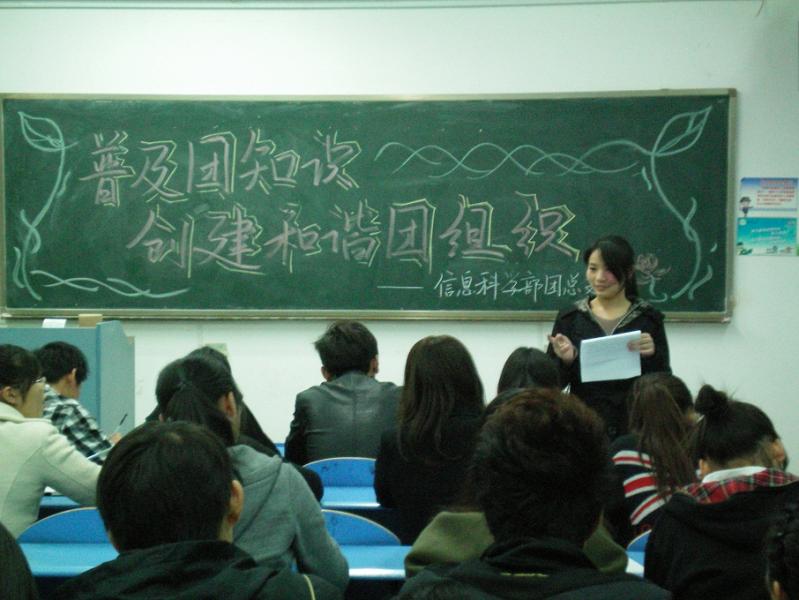 普及团知识
创建和谐团组织
——信息科学部团总